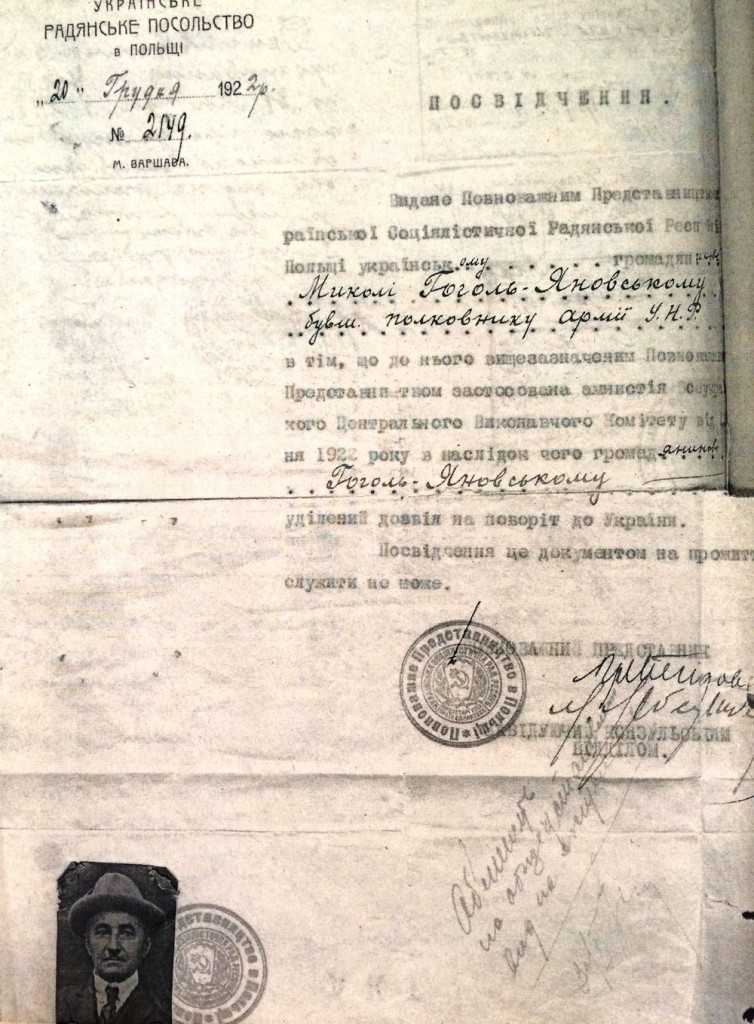 УКРАЇНСЬКЕ
РАДЯНСЬКЕ ПОСОЛЬСТВО
в ПОЛЬЩІ
„20" Грудня 1922р.
№ 2149.
м. ВАРШАВА.
ПОСВІДЧЕННЯ.
Видано Повноважним Представництво
раїнської Соціялістичної Радянської Респ
Польщі українськ ому громадян
Миколі Гоголь-Яновському
бувш. полковнику армії У.Н.Р.
в тім, що до нього вищезазначеним Повноважн
Представни твом застосована амнистія Всеукр
кого Центрального Виконавчого Комітету від
ня 1922 року в наслідок чого громад янинов
Гоголь-Яновському
уділений дозвіл на поворіт до України.
Посвідчення це документом на прожитт
служити не може.
ПРЕДСТАВНИК
КОНСУЛЬСЬКИМ
ВІДДІЛОМ.
Повноважне Представництво в Польщі
на
вид на